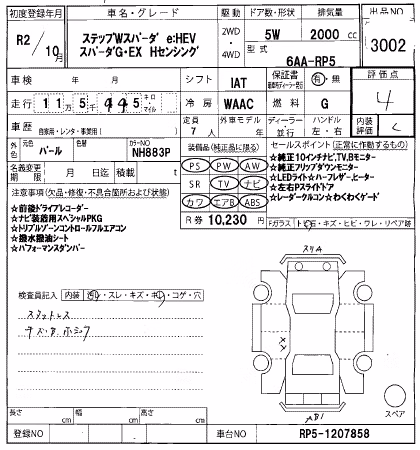 初度登録年月 車名・グレード 駆動 ドア数・形状 排気量 出品NO
R2/10月 ステップWスパーダ e:HEV スパーダG・EX Hセンシング 2WD・4WD 5W 2000cc 3002
型式 6AA-RP5
車検 年 月 シフト IAT 保証書 有・無 評価点
走行 11万5千445 キロ・マイル 冷房 WAAC 燃料 G 4
車歴 自家用・レンタ・事業用( ) 定員 7人 外車モデル 年 ディーラー・並行 ハンドル 左・右 内装評価 C
外色 元色 パール カラーNO NH883P
名義変更期限 月 日 積載 t
装備品(純正品に限る)
PS PW AW
SR TV ナビ
カワ エアB ABS
R券 10,230円
セールスポイント(正常に作動するもの)
★純正10インチナビ,TV,Bモニター
★純正フリップダウンモニター
★LEDライト★ハーフレザー,ヒーター
★左右Pスライドドア
★レーダークルコン★わくわくゲート
注意事項(欠品・修復・不具合箇所および状態)
☆前後ドライブレコーダー
☆ナビ装着用スペシャルPKG
☆トリプルゾーンコントロールフルエアコン
☆撥水撥油シート
☆パフォーマンスダンパー
Fガラス トビ石・キズ・ヒビ・ワレ・リペア跡
検査員記入 内装 ・スレ・キズ・ ・コゲ・穴
スペア
長さ cm 幅 cm 高さ cm
登録NO 車台NO RP5-1207858